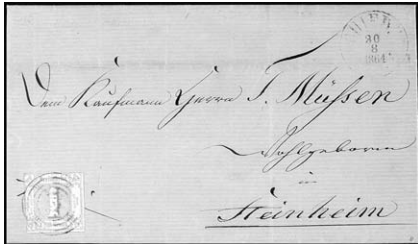 30
8
1864
Dem Kaufmann Herrn T. Müssen
Wohlgeboren
in
Steinheim
1